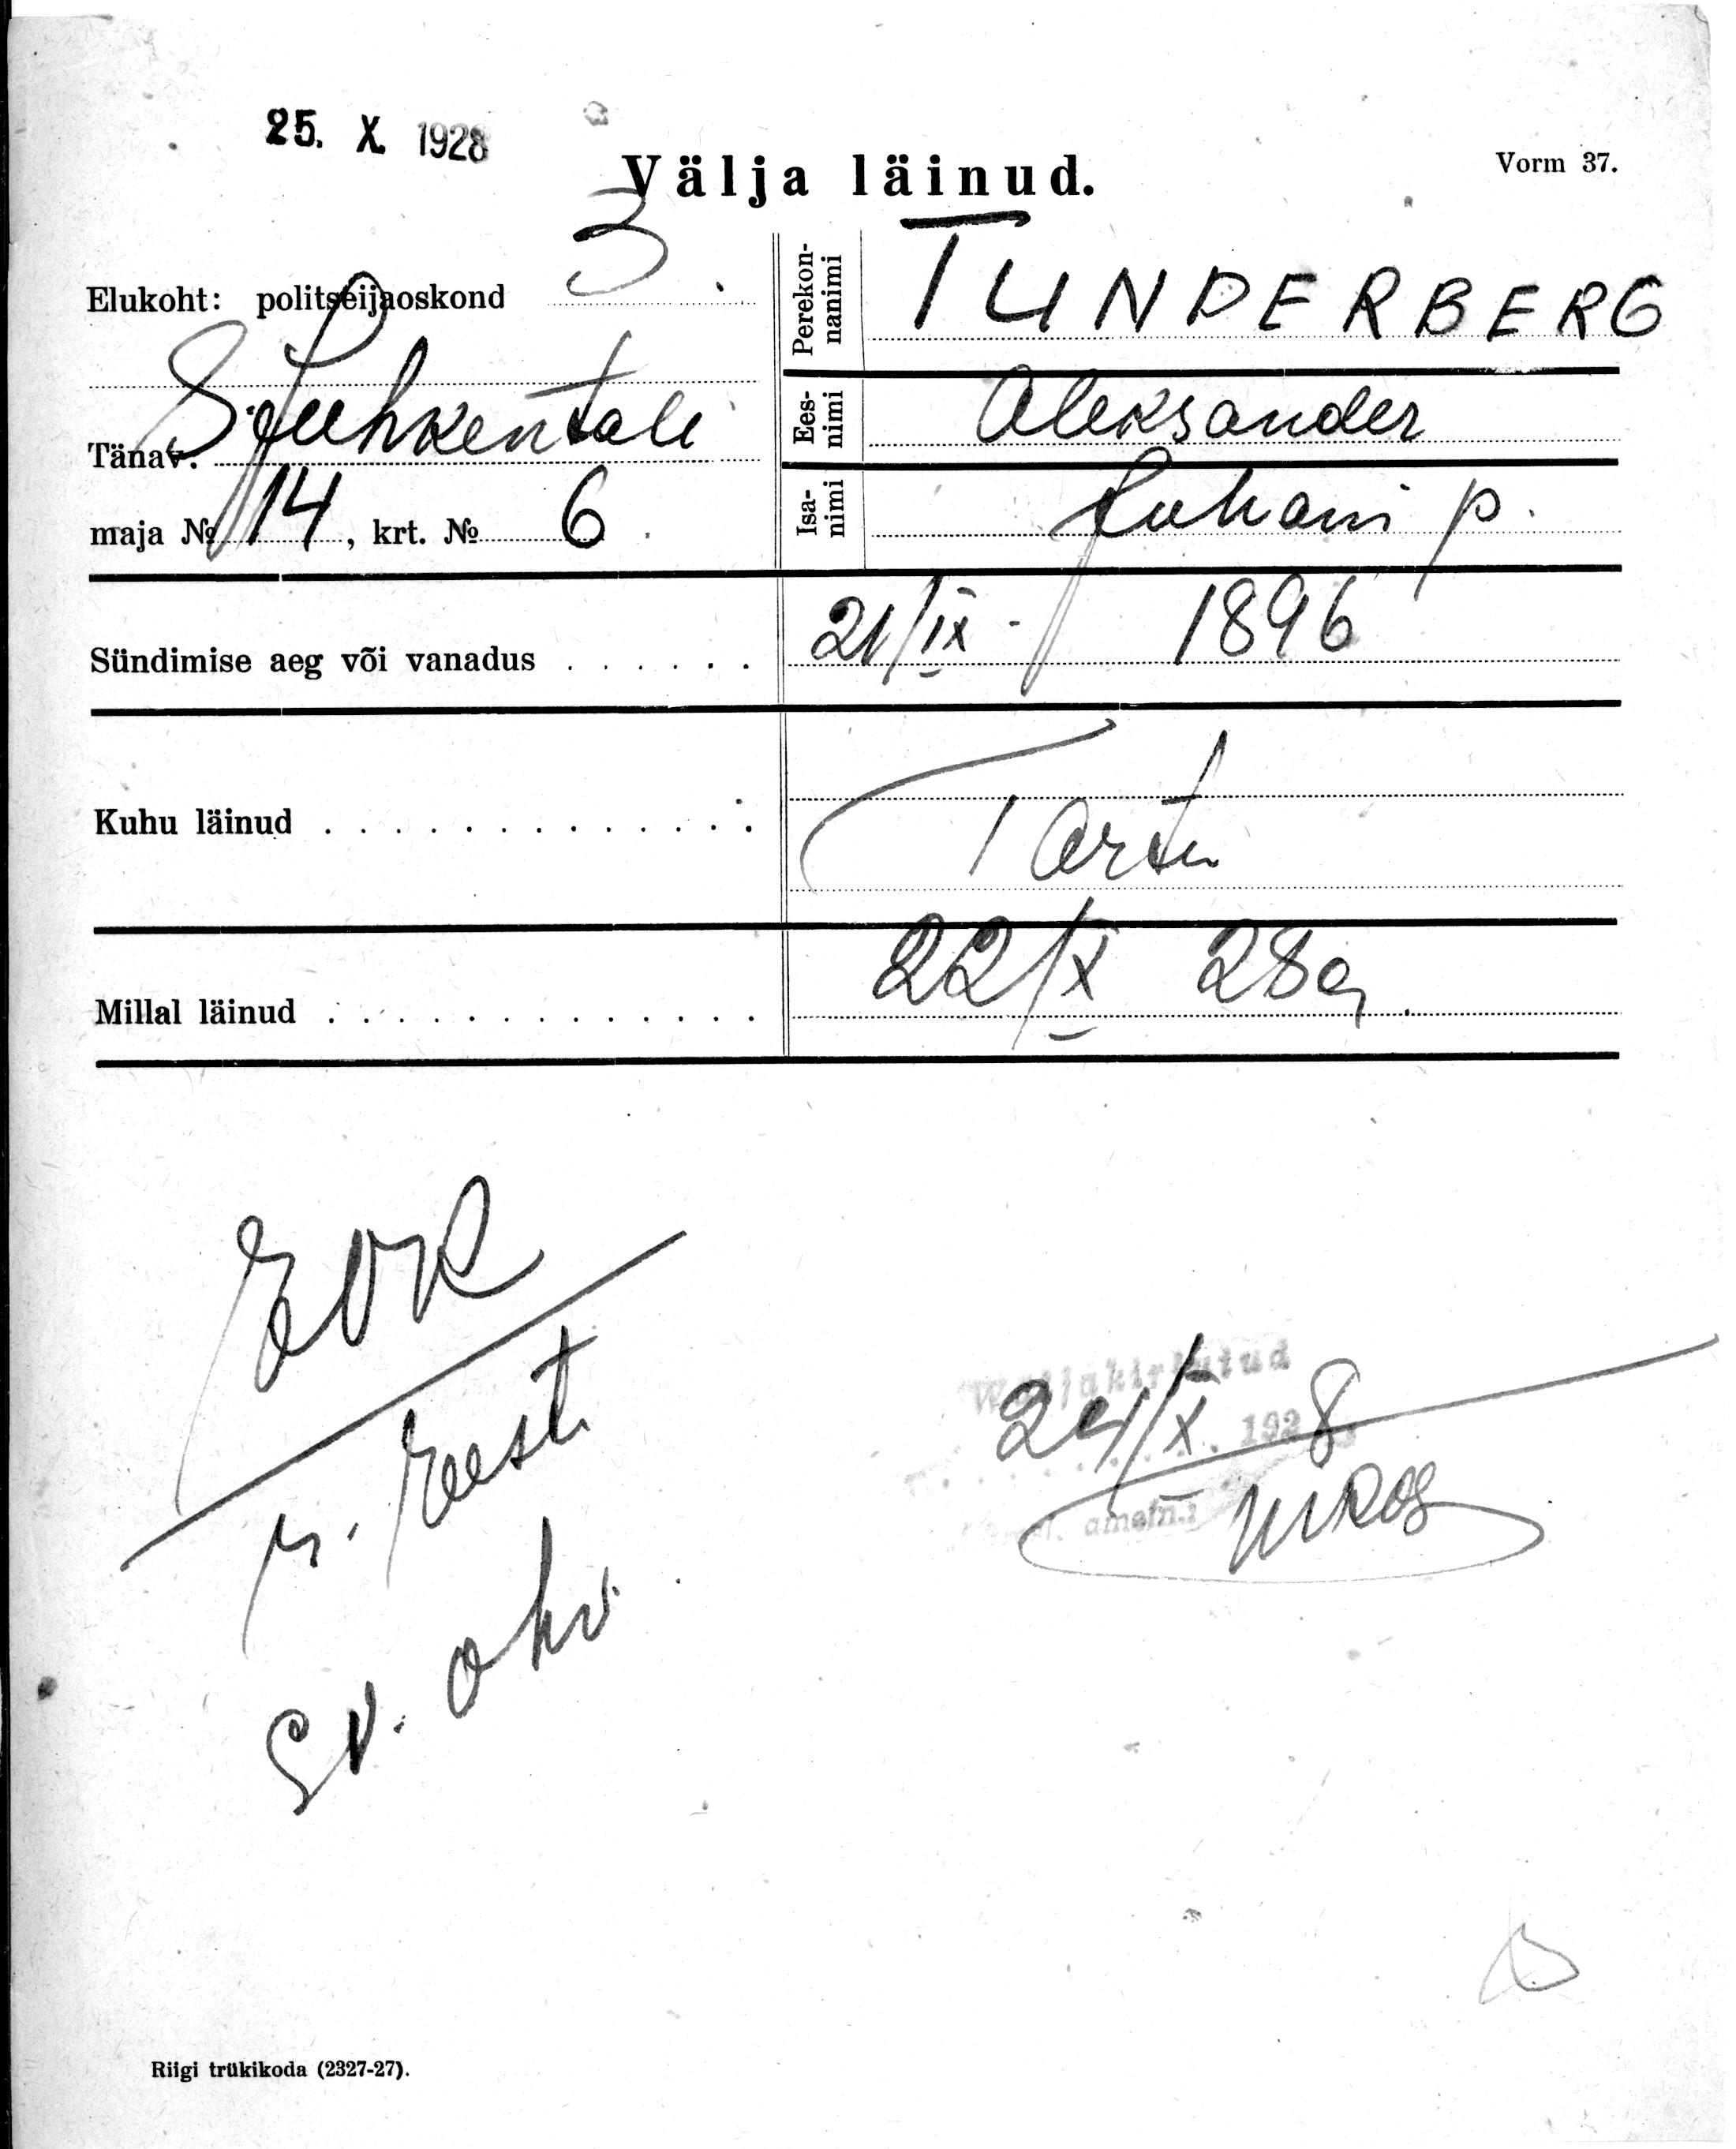 25. X 1928
Välja läinud.
Vorm 37.
Elukoht: politseijaoskond 3.
Tänav. S. Juhkentali
maja № 14, krt. № 6.
Perekonnanimi TUNDERBERG
Eesnimi Aleksander
Isanimi Juhani p.
Sündimise aeg või vanadus . . . . . . 21/IX - 1896
Kuhu läinud . . . . . . . . . . . . . Tartu
Millal läinud . . . . . . . . . . . . . 22/X 28a.
EVK
r. Eesti
Ev. ohv.
Väljakirjutud
24/X 1928
ametn.:
Riigi trükikoda (2327-27).